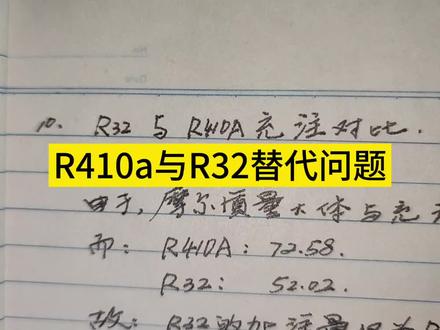 10. R32与R410A充注对比.
R410a与R32替代问题
由于,摩尔质量大体与充
而: R410A: 72.58.
R32: 52.02.
故: R32的加注量